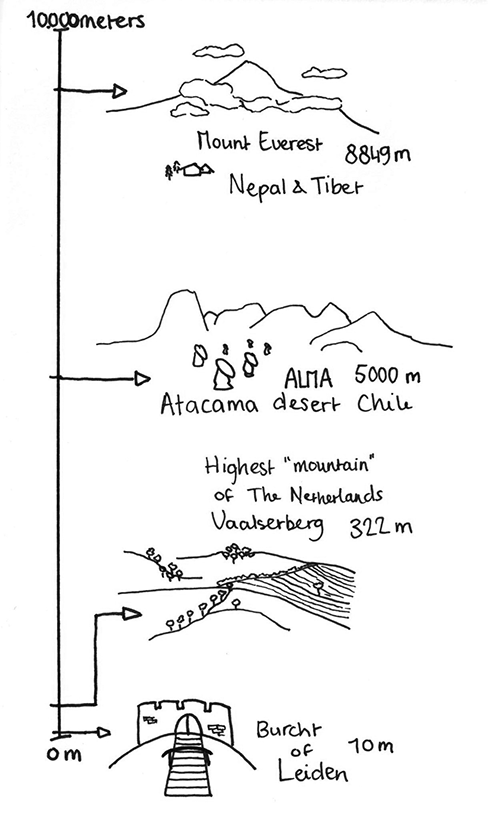 10.000meters
Mount Everest 8849m
Nepal & Tibet
ALMA 5000 m
Atacama desert Chile
Highest "mountain"
of The Netherlands
Vaalserberg 322m
Burcht
of 10m
Leiden
0m